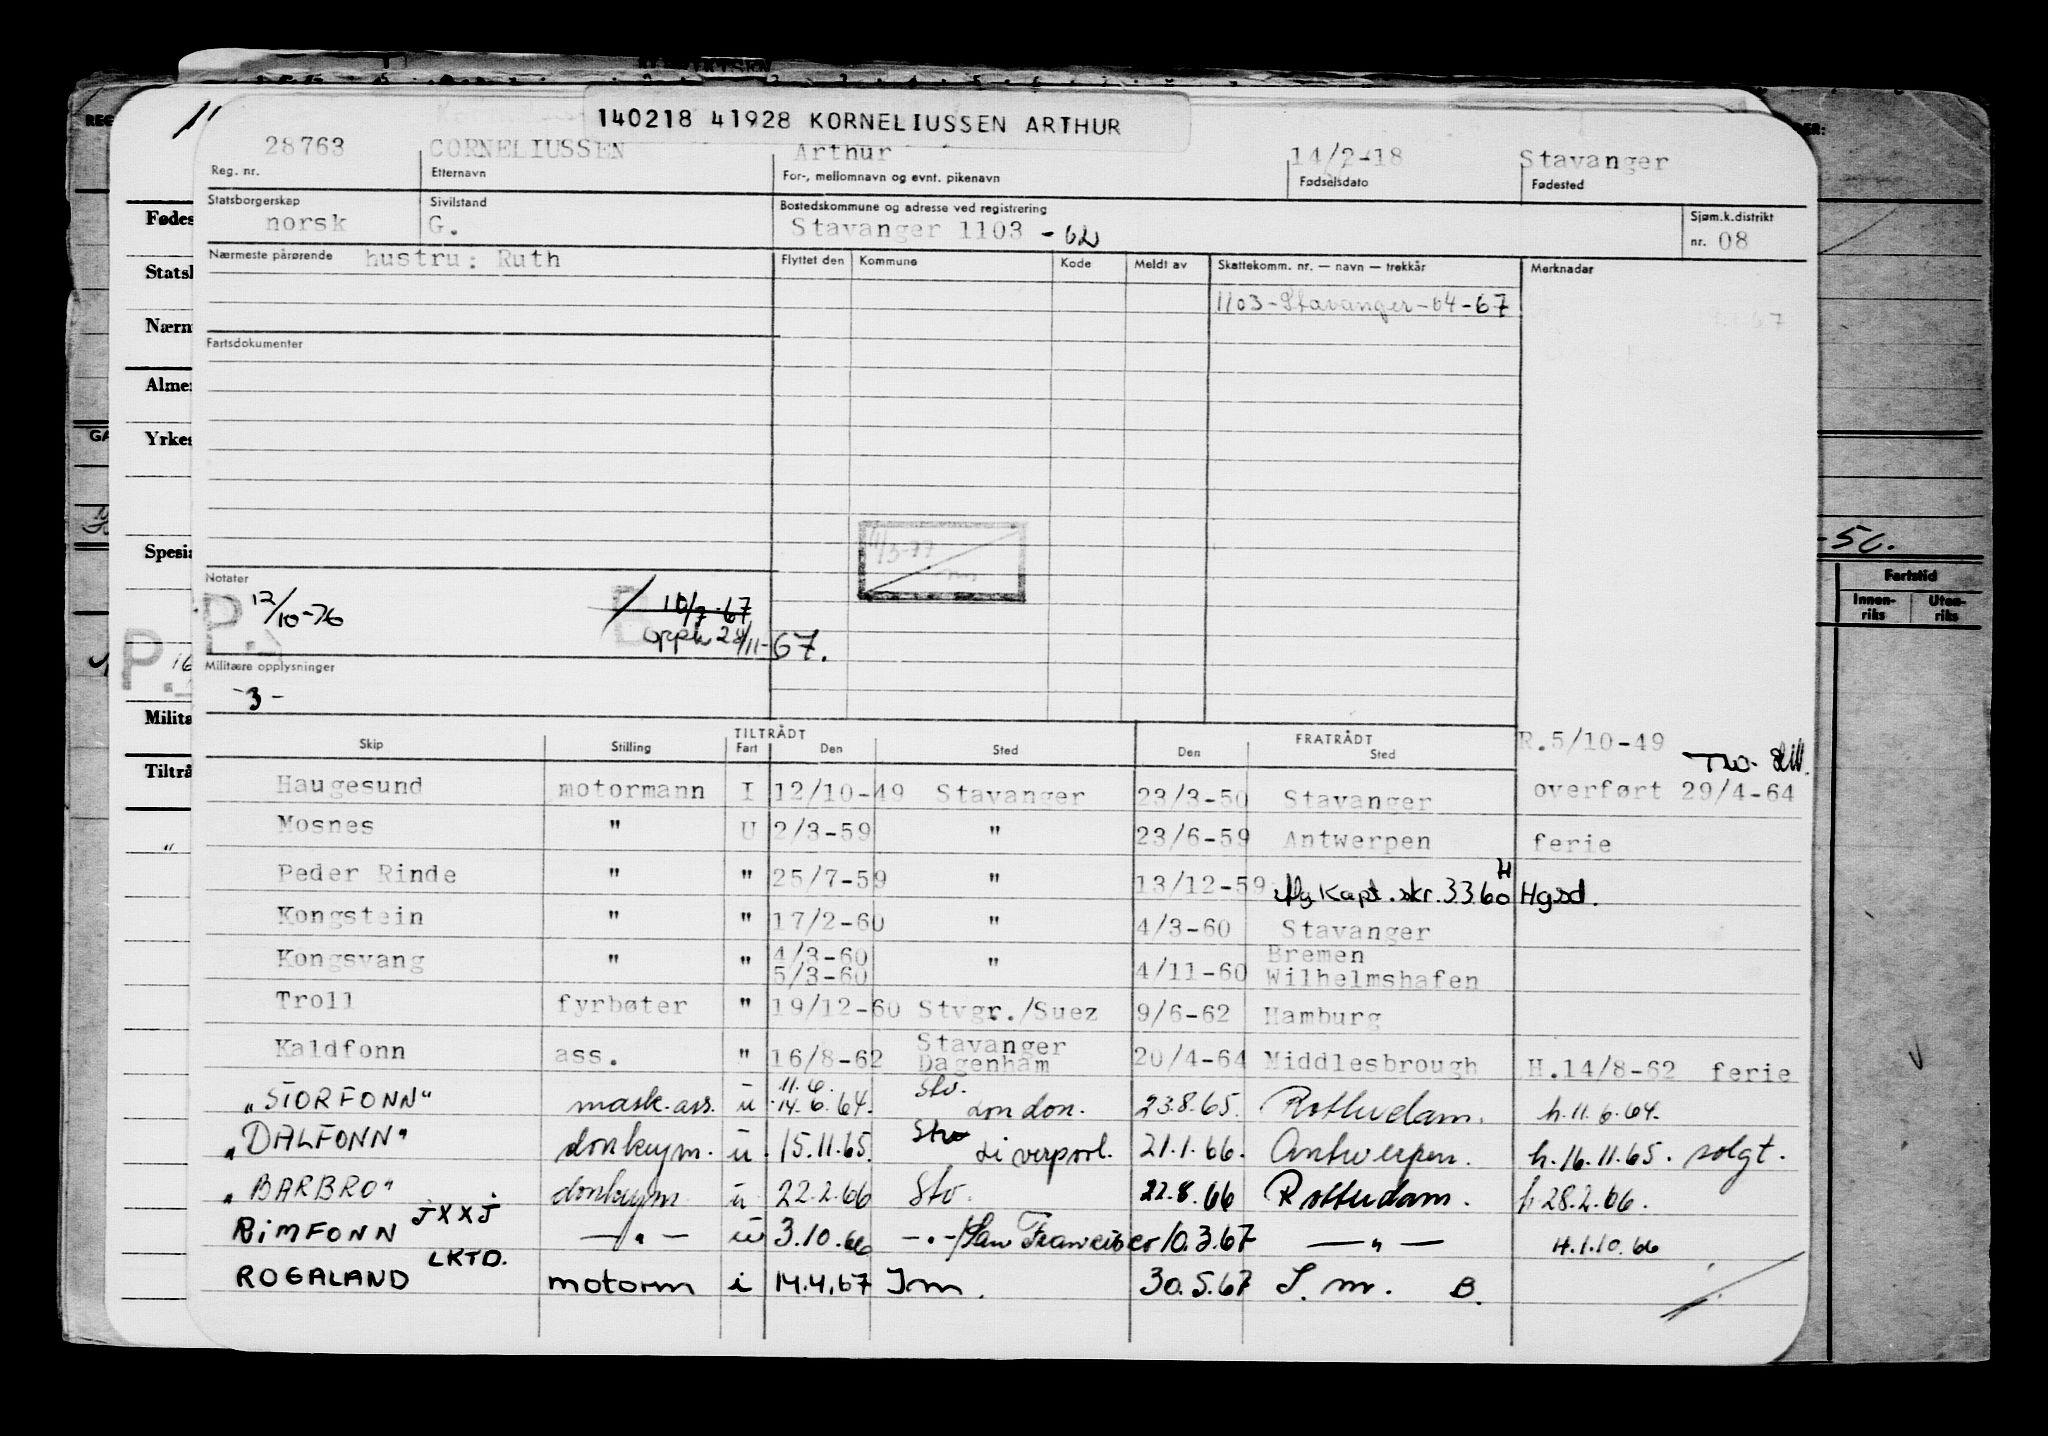 140218 41928 KORNELIUSSEN ARTHUR
28763 CORNELIUSSEN Arthur 14/2-18 Stavanger
Reg. nr. Etternavn For-, mellomnavn og evnt. pikenavn Fødselsdato Fødested
Statsborgerskap Sivilstand Bostedskommune og adresse ved registrering Sjøm.k.distrikt
norsk G. Stavanger 1103 - 62 nr. 08
Nærmeste pårørende hustru: Ruth Flyttet den Kommune Kode Meldt av Skattekomm. nr. — navn — trekkår Merknader
1103-Stavanger-04-67
Fartsdokumenter
11/3-77
Notater
P. 12/10-76 10/7-67
opph 28/11-67.
Militære opplysninger
-3-
Skip Stilling TILTRÅDT Fart Den Sted FRATRÅDT Den Sted R.5/10-49
Haugesund motormann I 12/10-49 Stavanger 23/3-50 Stavanger overført 29/4-64
Mosnes " U 2/3-59 " 23/6-59 Antwerpen ferie
Peder Rinde " " 25/7-59 " 13/12-59 Kapt. skr. 3360 H Hgsd.
Kongstein " " 17/2-60 " 4/3-60 Stavanger
Kongsvang " " 4/3-60 5/3-60 " 4/11-60 Bremen Wilhelmshafen
Troll fyrbøter " 19/12-60 Stvgr./Suez 9/6-62 Hamburg
Kaldfonn ass. " 16/8-62 Stavanger Dagenham 20/4-64 Middlesbrough H.14/8-62 ferie
"STORFONN" mask.ass. u 11.6. 14.6.64. Stv. London. 23.8.65. Rotterdam. h.11.6.64.
"DALFONN" donkeym. u. 15.11.65. Stv Liverpool. 21.1.66. Antwerpen. h.16.11.65. solgt.
"BARBRO" donkeym. u 22.2.66 Stv. 22.8.66 Rotterdam. h 28.2.66.
RIMFONN JXXJ —"— u 3.10.66 -"-/San Francisco 10.3.67 —"— H.1.10.66
ROGALAND LKTD. motorm i 14.4.67 I.m. 30.5.67 I.m. B.
Fødes
Statsb
Nærm
Almen
Yrkes
Spesia
P. 16
Milita
Tiltrå
"
-50.
Fartstid
Innen-riks Uten-riks